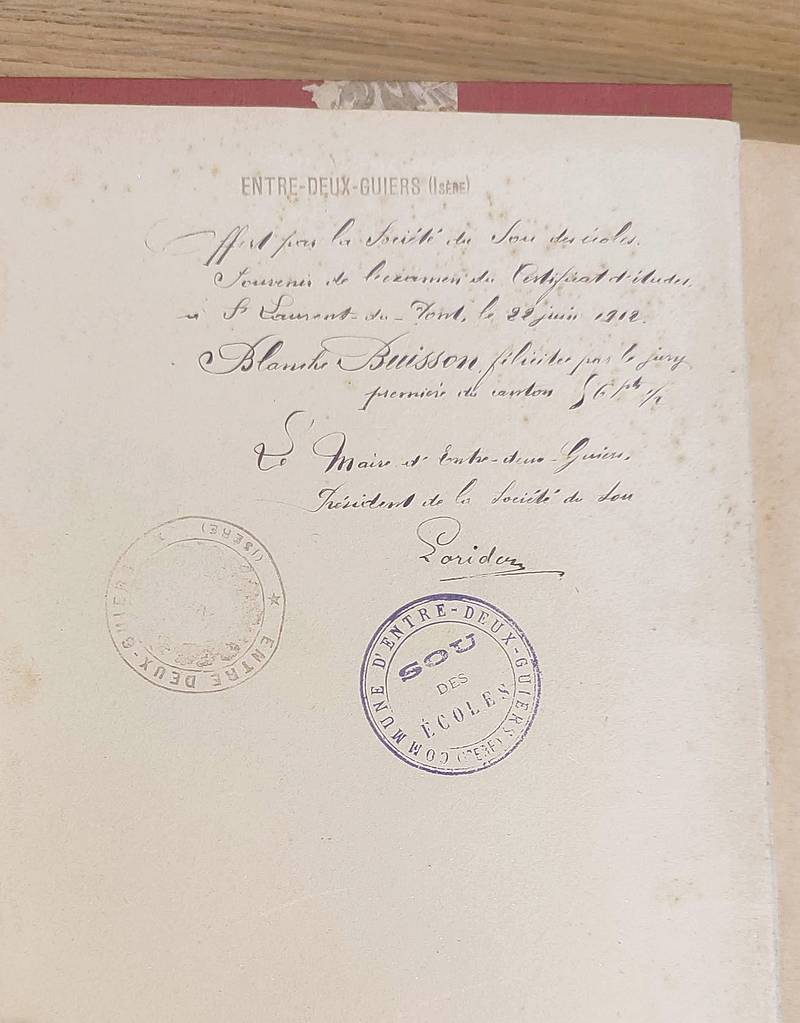 ENTRE-DEUX-GUIERS (ISÈRE)
Offert par la Société du Sou des écoles.
Souvenir de l'examen du Certificat d'études,
à St Laurent-du-Pont, le 22 juin 1912.
Blanche Buisson, félicitée par le jury
première du canton 56 pts 1/2
Le Maire d'Entre-deux-Guiers,
Président de la Société du Sou
★ ENTRE DEUX-GUIERS (ISÈRE)
COMMUNE D'ENTRE-DEUX-GUIERS (ISÈRE)
SOU
DES
ÉCOLES